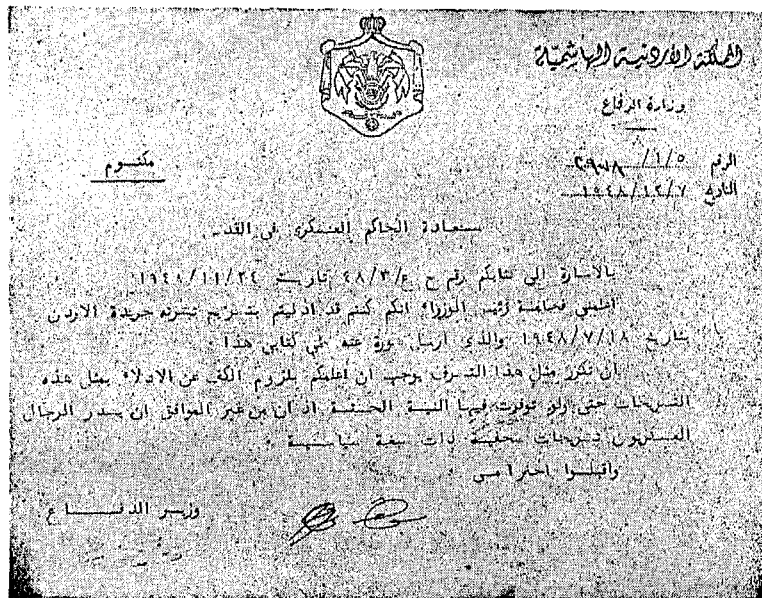 المملكة الأردنية الهاشمية
وزارة الدفاع
الرقم ١/٥/
التاريخ ١٩٤٨/١٢/٧
مكتوم
سعادة الحاكم العسكري في القدس
بالاشارة الى كتابكم رقم ح ع/٤٨/٣ تاريخ ١٩٤٨/١١/٢٤
اعلمني فخامة رئيس الوزراء انكم كنتم قد ادليتم بتصريح نشرته جريدة الاردن
بتاريخ ١٩٤٨/٧/١٨ والذي ارسل صورة عنه طي كتابي هذا
ان تكرر مثل هذا التصرف يوجب ان أعلمكم بلزوم الكف عن الادلاء بمثل هذه
التصريحات حتى ولو توفرت فيها النية الحسنة اذ أن من غير الموافق ان يصدر الرجال
العسكريون تصريحات صحفية ذات صبغة سياسية .
واقبلوا احترامي
وزير الدفاع